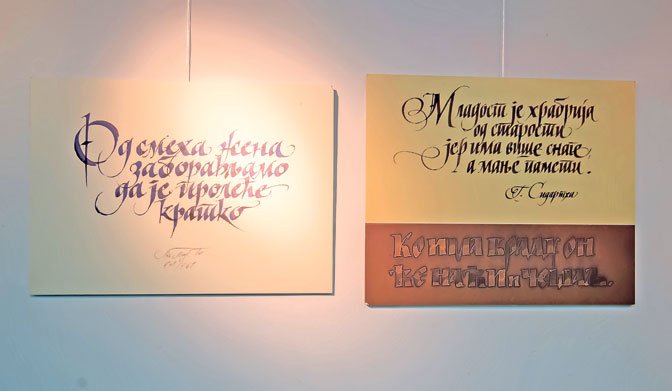 Од смеха жена
заборављамо
да је пролеће
кратко
Младост је храбрија
од старости
јер има више снаге,
а мање памети.
Г. Сидартха
он
ће